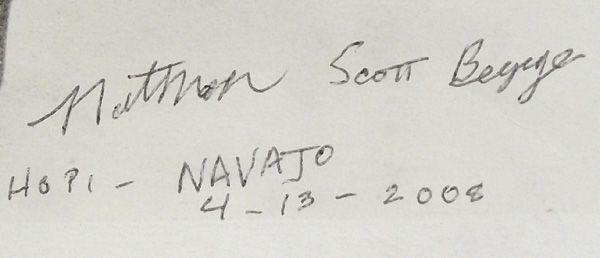 Nathan Scott Begaye
HOPI - NAVAJO
4-13-2008